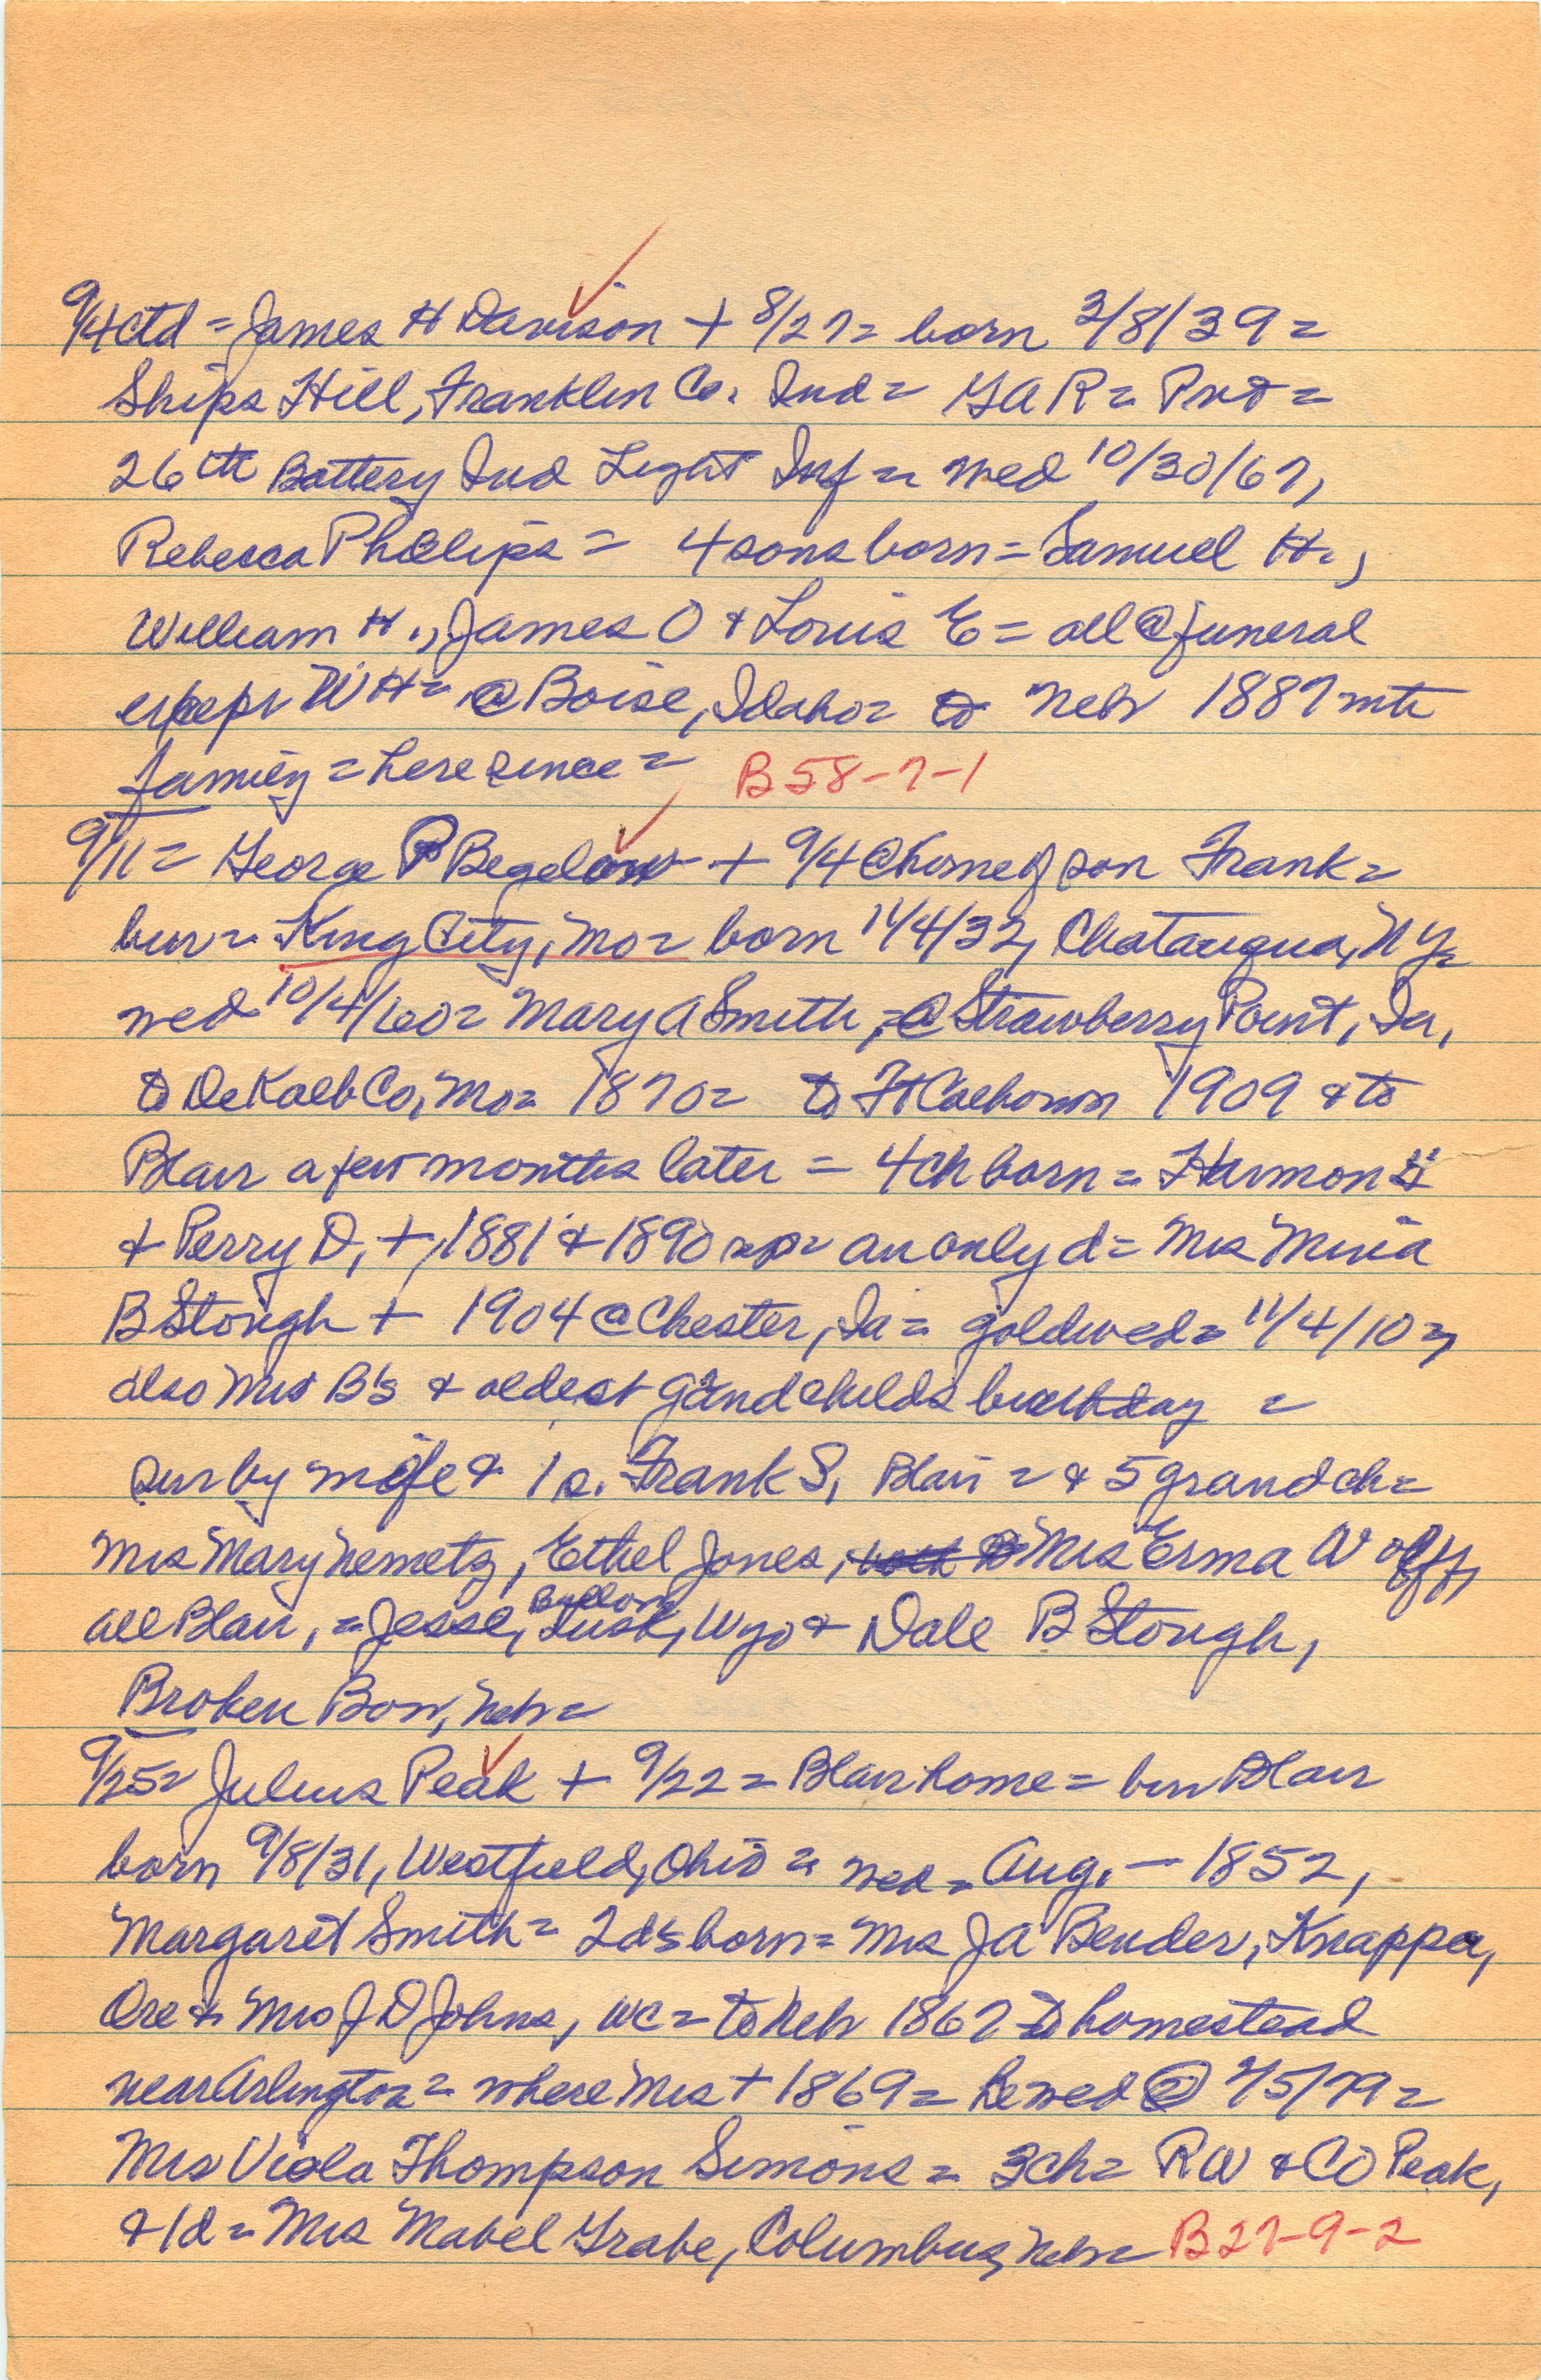 9/4 ctd = James H Davison + 8/27 = born 3/8/39 =
Ships Hill, Franklin Co. Ind = GAR = Pvt =
26th Battery Ind Light Inf = wed 10/30/67,
Rebecca Phillips = 4 sons born = Samuel H.,
William H., James O & Louis E = all @ funeral
except WH = @ Boise, Idaho = to Neb 1887 with
family = here since = B58-7-1
9/11 = George P Begelow + 9/4 @ home of son Frank =
bur = King City, Mo = born 11/4/32, Chatauqua, NY =
wed 10/4/60 = Mary A Smith, = @ Strawberry Point, Ia,
to DeKalb Co, Mo = 1870 = to Ft Calhoun 1909 & to
Blair a few months later = 4 ch born = Harmon
& Perry D, +, 1881 & 1890 = an only d = Mrs
B Stough + 1904 @ Chester, Ia = goldwed = 11/4/10 =,
also Mrs B's & oldest grandchilds birthday =
sur by wife & 1 s. Frank S, Blair = & 5 grandch =
Mrs Mary Nemetz, Ethel Jones, Mrs Erma Wolff,
all Blair, = Jesse, Lusk, Wyo & Dale B Stough,
Broken Bow, Neb =
9/25 = Julius Peak + 9/22 = Blair home = bur Blair
born 9/8/31, Westfield, Ohio = wed = Aug. — 1852,
Margaret Smith = 2 ds born = Mrs JA Bender, Knappa,
Ore & Mrs J D Johns, WC = to Neb 1867 to homestead
near Arlington = where Mrs + 1869 = he wed ② /5/79 =
Mrs Viola Thompson Simons = 3 ch = RW & CO Peak,
& 1 d = Mrs Mabel Grabe, Columbus, Neb = B27-9-2